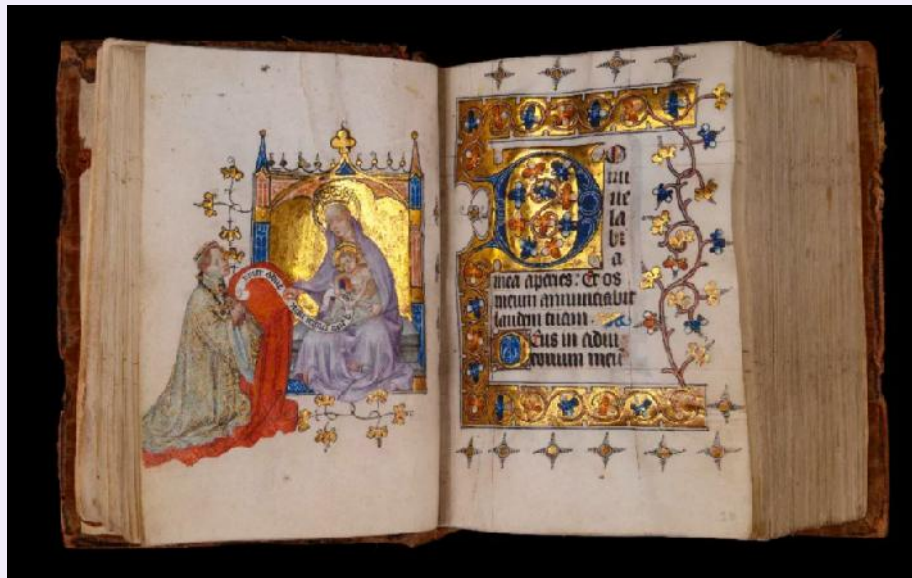 DO
mi
ne
la
bi
a
mea aperies: Et os
meum annunciabit
laudem tuam.
Deus in adiu
torium meū